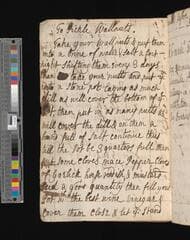 To Pickle Wallnuts.
Take your wallnuts & put them
into a brine of water & salt a fort-
night shifting them every 3 days
then take your nutts and put
into a stone pot laying as much
dill as will cover the bottom of
then put in as many nutts as
will cover the dill & on them a
pot of salt continue this
till the pot be 3 quarters full then
put some cloves mace pepper
of Garlick horse reddish & mustard
seed a good quantity then fill your
pot with the best wine vinegar &
cover them close & let it stand